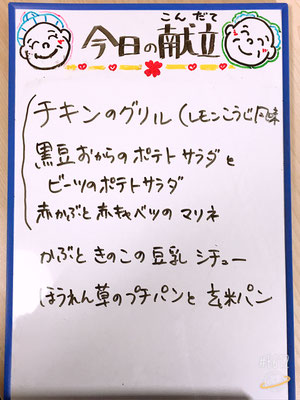 こんだて
今日の献立
チキンのグリル(レモンこうじ風味
黒豆おからのポテトサラダと
ビーツのポテトサラダ
赤かぶと赤キャベツのマリネ
かぶときのこの豆乳シチュー
ほうれん草のプチパンと玄米パン